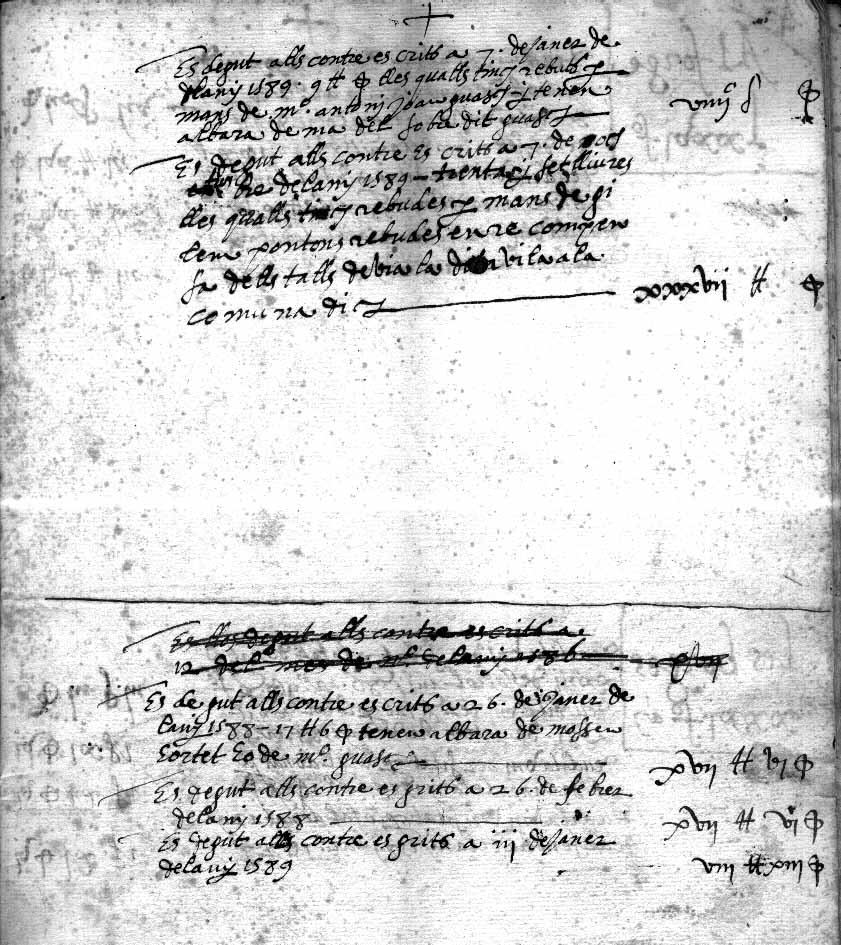 Es degut alls contre escrits a 7. de Janer de
lany 1589. 9 ll
mans de mº. antoni joan guasch tenen
albara de ma del sobre dit guasch
Es degut alls contre escrits a 7. de
bre de lany 1589 – trenta set lliures
lles qualls tinch rebudes p mans de gi
lem pontons rebudes en re compen
sa dells talls devia la vila a la
comuna dic
viiiiº
xxxvii ll
Es degut alls contre escrits a
12 del mes de de lany 1586
Es de gut alls contre escrits a 26. de Janer de
lany 1588 – 17 ll 6 tenen albara de mossen
de mº. guasc
xvii ll vi
Es degut alls contre esgrits a 26. de febrer
de lany 1588
xvii ll vi
Es degut alls contre esgrits a iii de Janer
de lany 1589
viii ll xiii